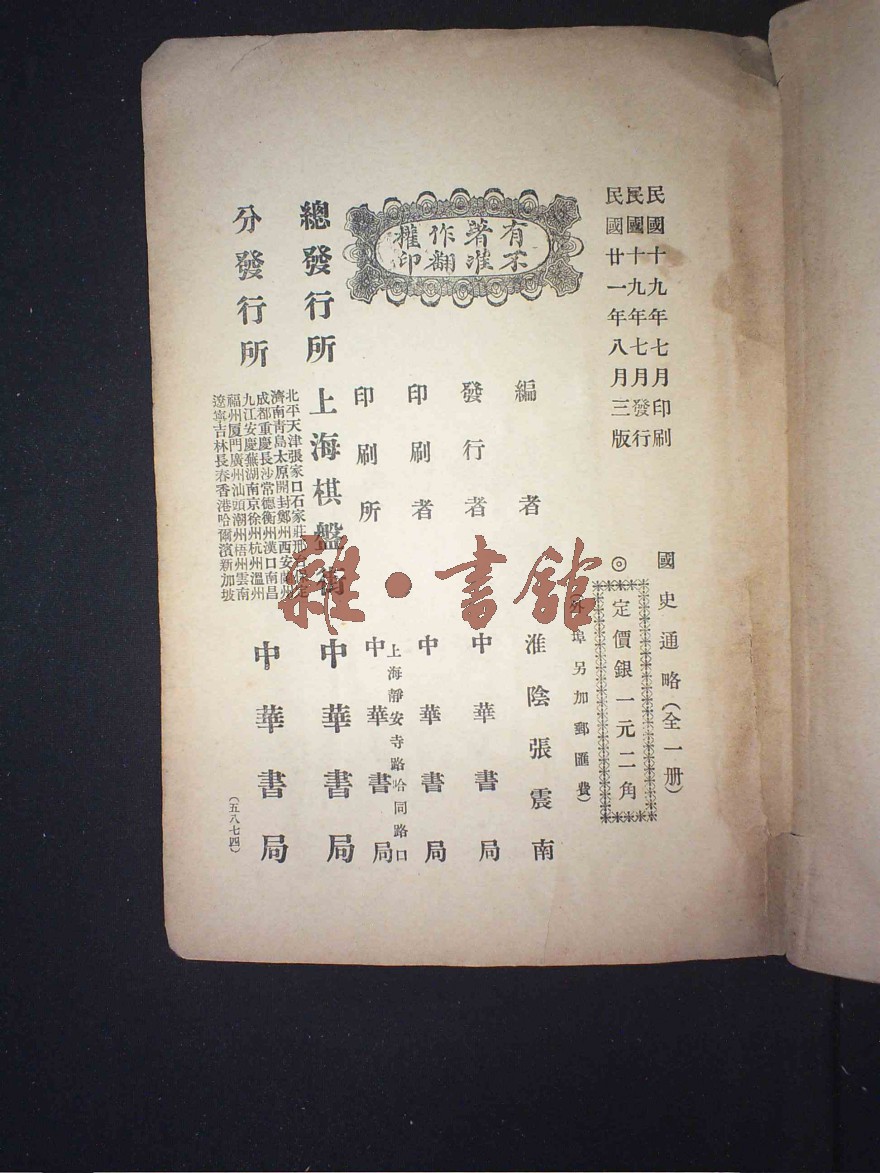 民國十九年七月印刷
民國十九年七月發行
民國廿一年八月三版
國史通略(全一册)
◎定價銀一元二角
(外埠另加郵匯費)
有著作權
不准翻印
編者 淮陰張震南
發行者 中華書局
印刷者 中華書局
上海靜安寺路哈同路口
印刷所 中華書局
總發行所 上海棋盤街 中華書局
分發行所
北平天津張家口石家莊邢
濟南青島太原開封鄭州西安蘭州
成都重慶長沙常德衡州漢口南昌
九江安慶蕪湖南京徐州杭州溫州
福州厦門廣州汕頭潮州梧州雲南
遼寧吉林長春香港哈爾濱新加坡
中華書局
(五八七四)
雜·書館